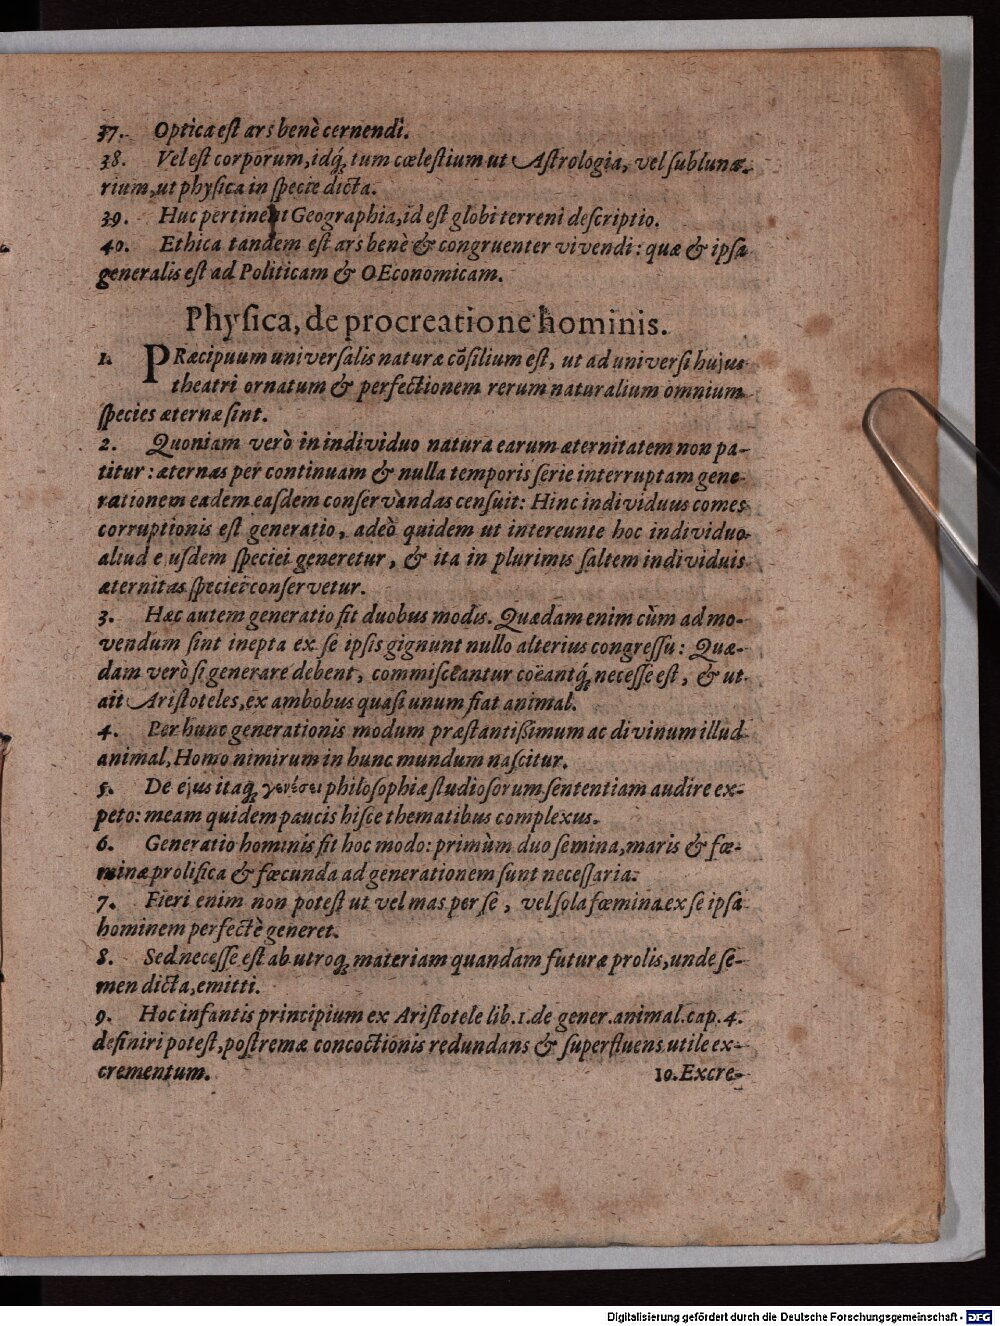 37. Optica est ars benè cernendi.
38. Vel est corporum, idq́; tum cœlestium ut Astrologia, vel sublunæ-
rium, ut physica in specie dicta.
39. Huc pertinent Geographia, id est globi terreni descriptio.
40. Ethica tandem est ars benè & congruenter vivendi: quæ & ipsa
generalis est ad Politicam & OEconomicam.
Physica, de procreatione hominis.
1. PRæcipuum universalis naturæ cōsilium est, ut ad universi hujus
theatri ornatum & perfectionem rerum naturalium omnium
species æternæ sint.
2. Quoniam verò in individuo natura earum æternitatem non pa-
titur: æternas per continuam & nulla temporis serie interruptam gene-
rationem eadem easdem conservandas censuit: Hinc individuus comes
corruptionis est generatio, adeò quidem ut intereunte hoc individuo
aliud ejusdem speciei generetur, & ita in plurimis saltem individuis
æternitas speciei conservetur.
3. Hæc autem generatio fit duobus modis. Quædam enim cùm ad mo-
vendum sint inepta ex se ipsis gignunt nullo alterius congressu: Quæ-
dam verò si generare debent, commisceantur coëantq́; necesse est, & ut
ait Aristoteles, ex ambobus quasi unum fiat animal.
4. Per hunc generationis modum præstantißimum ac divinum illud
animal, Homo nimirum in hunc mundum nascitur.
5. De ejus itaq́; γενέσει philosophiæ studiosorum sententiam audire ex-
peto: meam quidem paucis hisce thematibus complexus.
6. Generatio hominis fit hoc modo: primùm duo semina, maris & fœ-
minæ prolifica & fœcunda ad generationem sunt necessaria.
7. Fieri enim non potest ut vel mas per se, vel sola fœmina ex se ipsa
hominem perfectè generet.
8. Sed necesse est ab utroq́; materiam quandam futuræ prolis, unde se-
men dicta, emitti.
9. Hoc infantis principium ex Aristotele lib. 1. de gener. animal. cap. 4.
definiri potest, postremæ concoctionis redundans & superfluens utile ex-
crementum. 10. Excre-
Digitalisierung gefördert durch die Deutsche Forschungsgemeinschaft - DFG